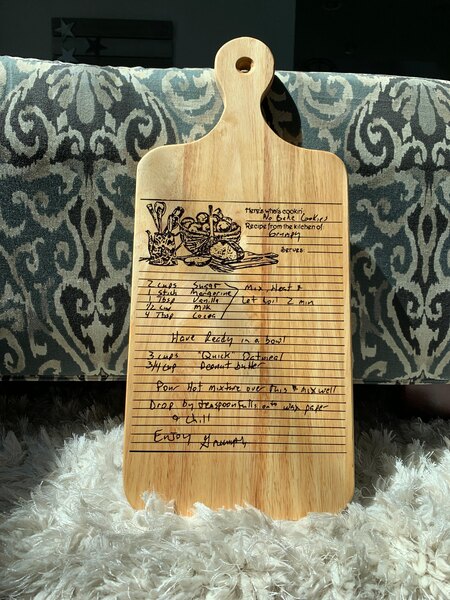 Here's what's cookin: No Bake Cookies
Recipe from the kitchen of Grumpy
Serves:
2 cups Sugar Mix, Heat &
1 stick Margarine Let boil 2 min
1 Tbsp Vanilla
1/2 cup Milk
4 Tbsp Cocoa
Have Ready in a bowl
3 cups "Quick" Oatmeal
3/4 cup Peanut butter
Pour Hot mixture over this & mix well
Drop by teaspoonfulls onto wax paper
& chill
Enjoy Grumpy